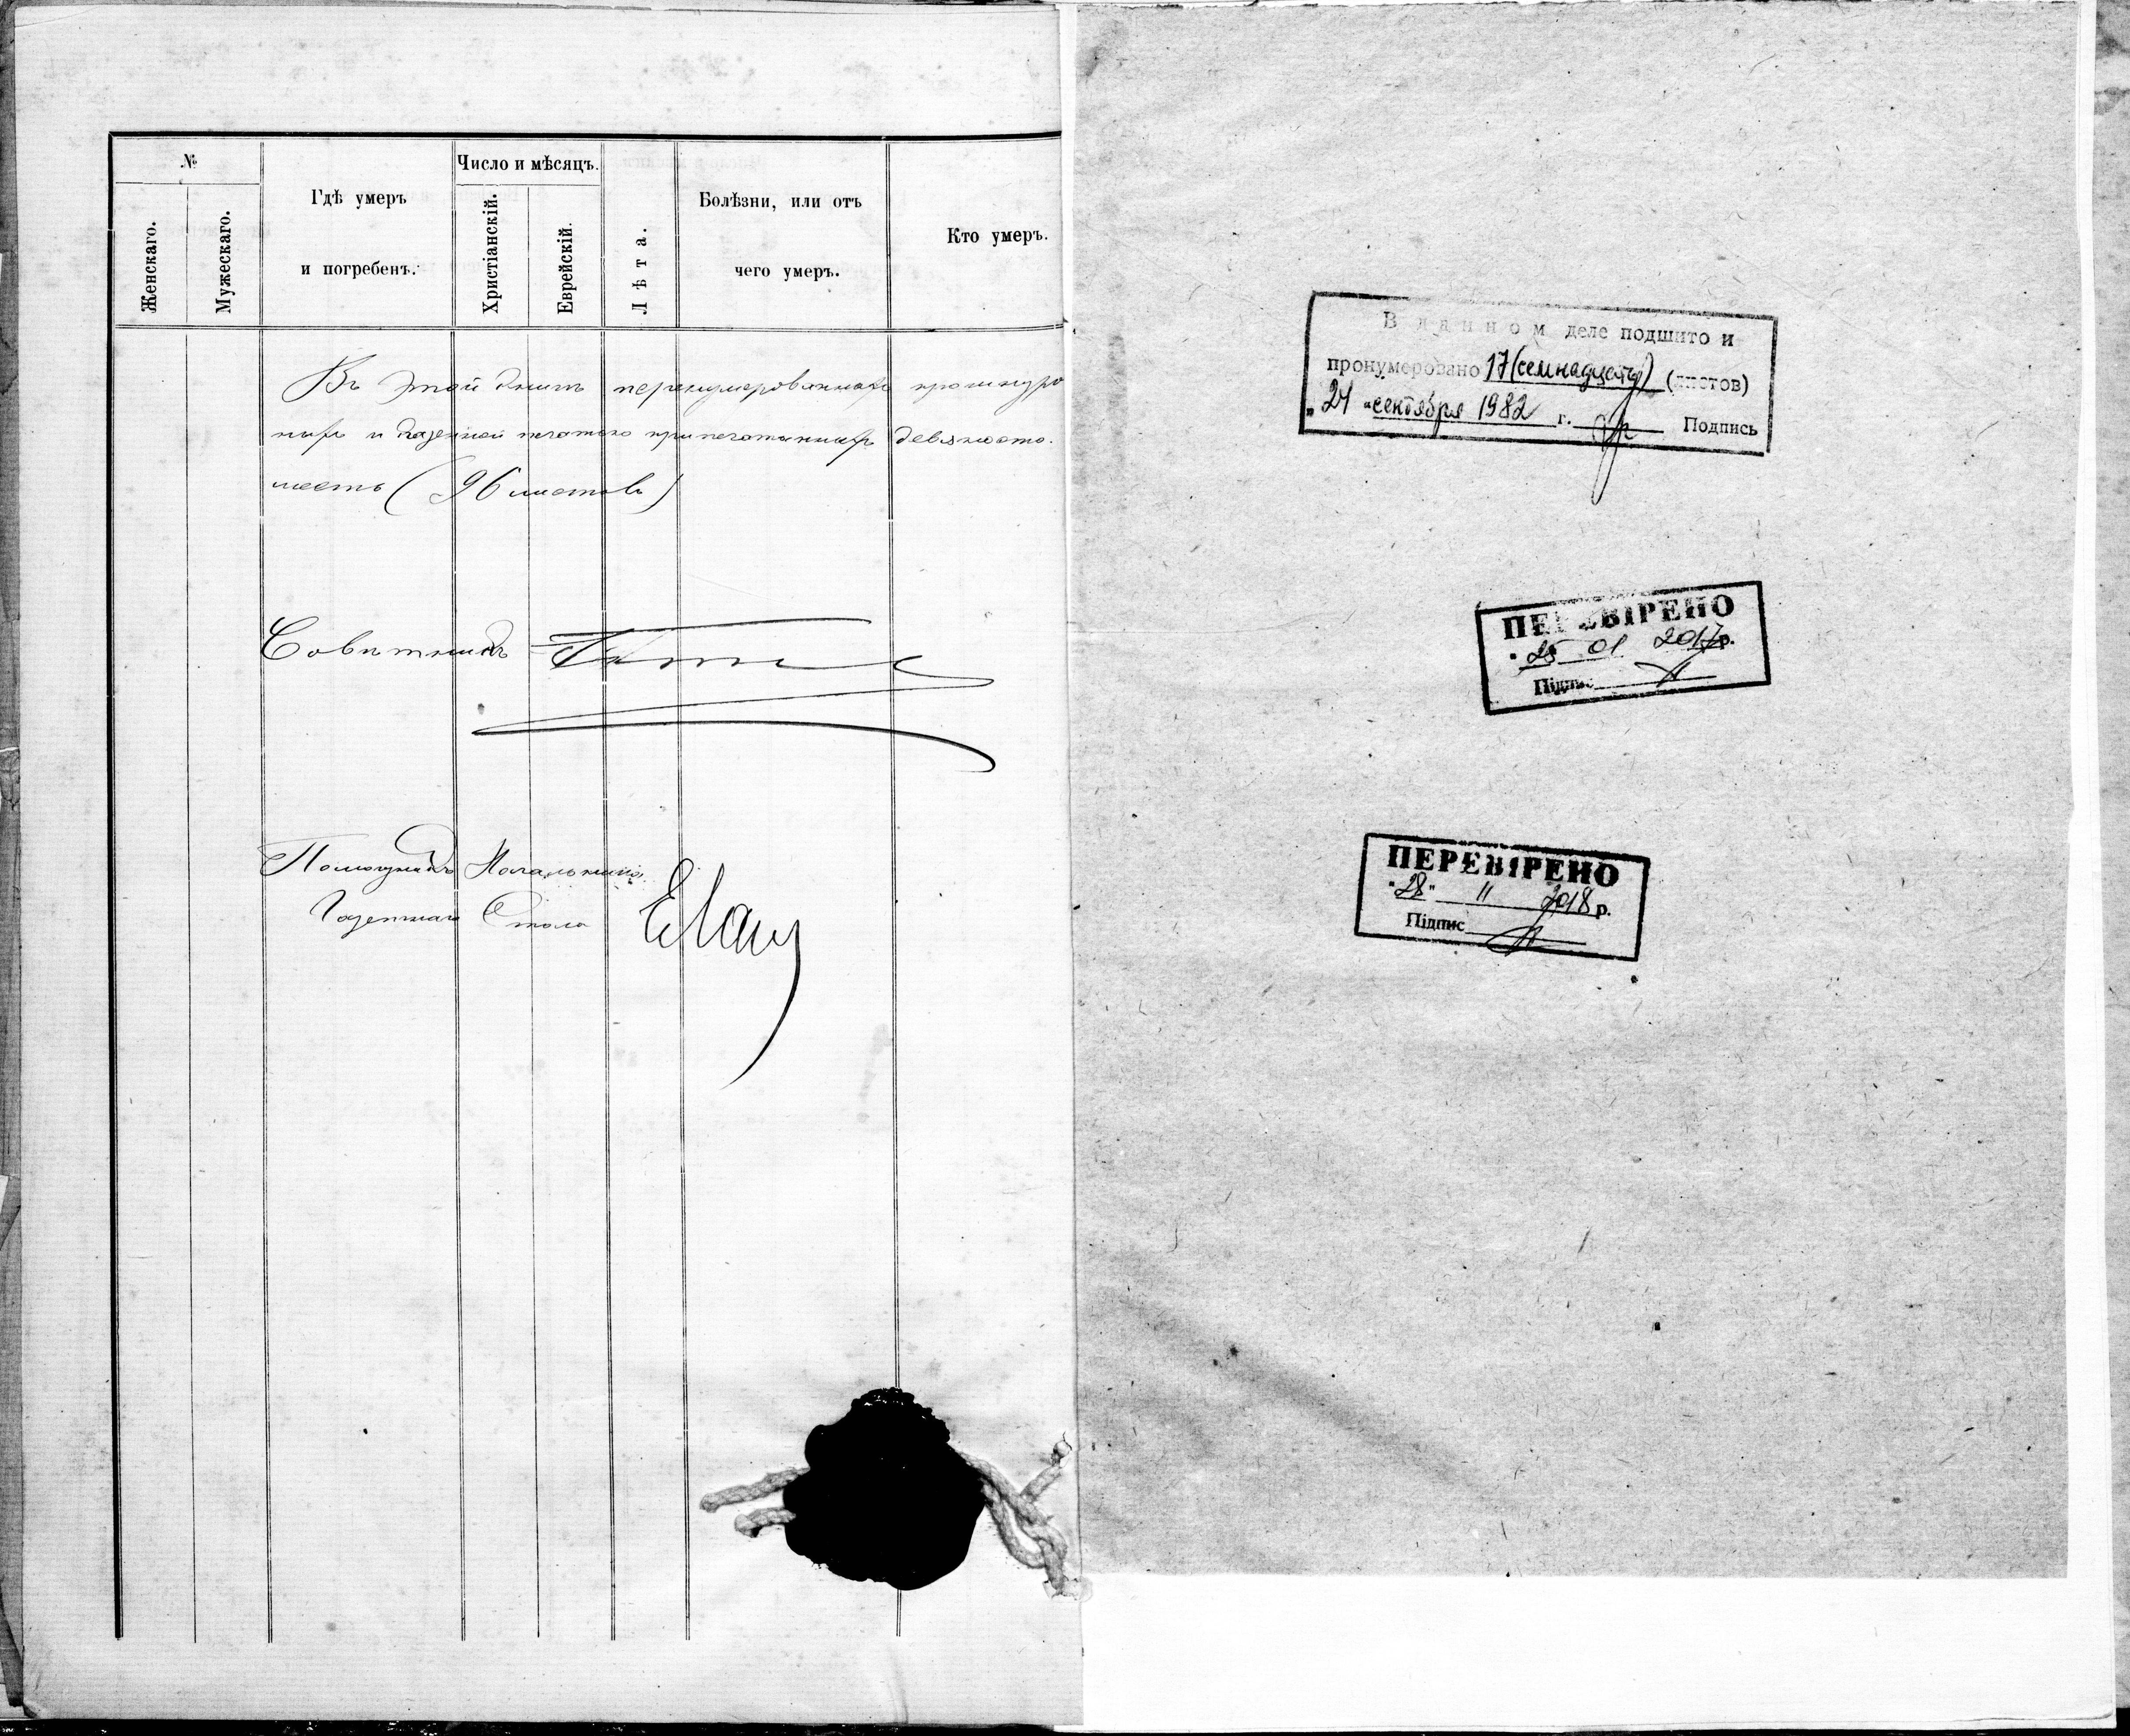 №
Женскаго.
Мужескаго.
Гдѣ умеръ
и погребенъ.
Число и мѣсяцъ.
Христіанскій.
Еврейскій.
Лѣта.
Болѣзни, или отъ
чего умеръ.
Кто умеръ.
Въ этой книгѣ перенумерованныхъ прошнуро
ныхъ и казенной печатью припечатанныхъ девяносто.
шесть (96 листовъ)
Совѣтникъ
Помощникъ Начальника
Газетнаго Стола
В данном деле подшито и
пронумеровано 17 (семнадцать) (листов)
"24" сентября 1982 г. Подпись
ПЕРЕВІРЕНО
"25" 01 2017р.
Підпис
ПЕРЕВІРЕНО
"28" 11 2018 р.
Підпис